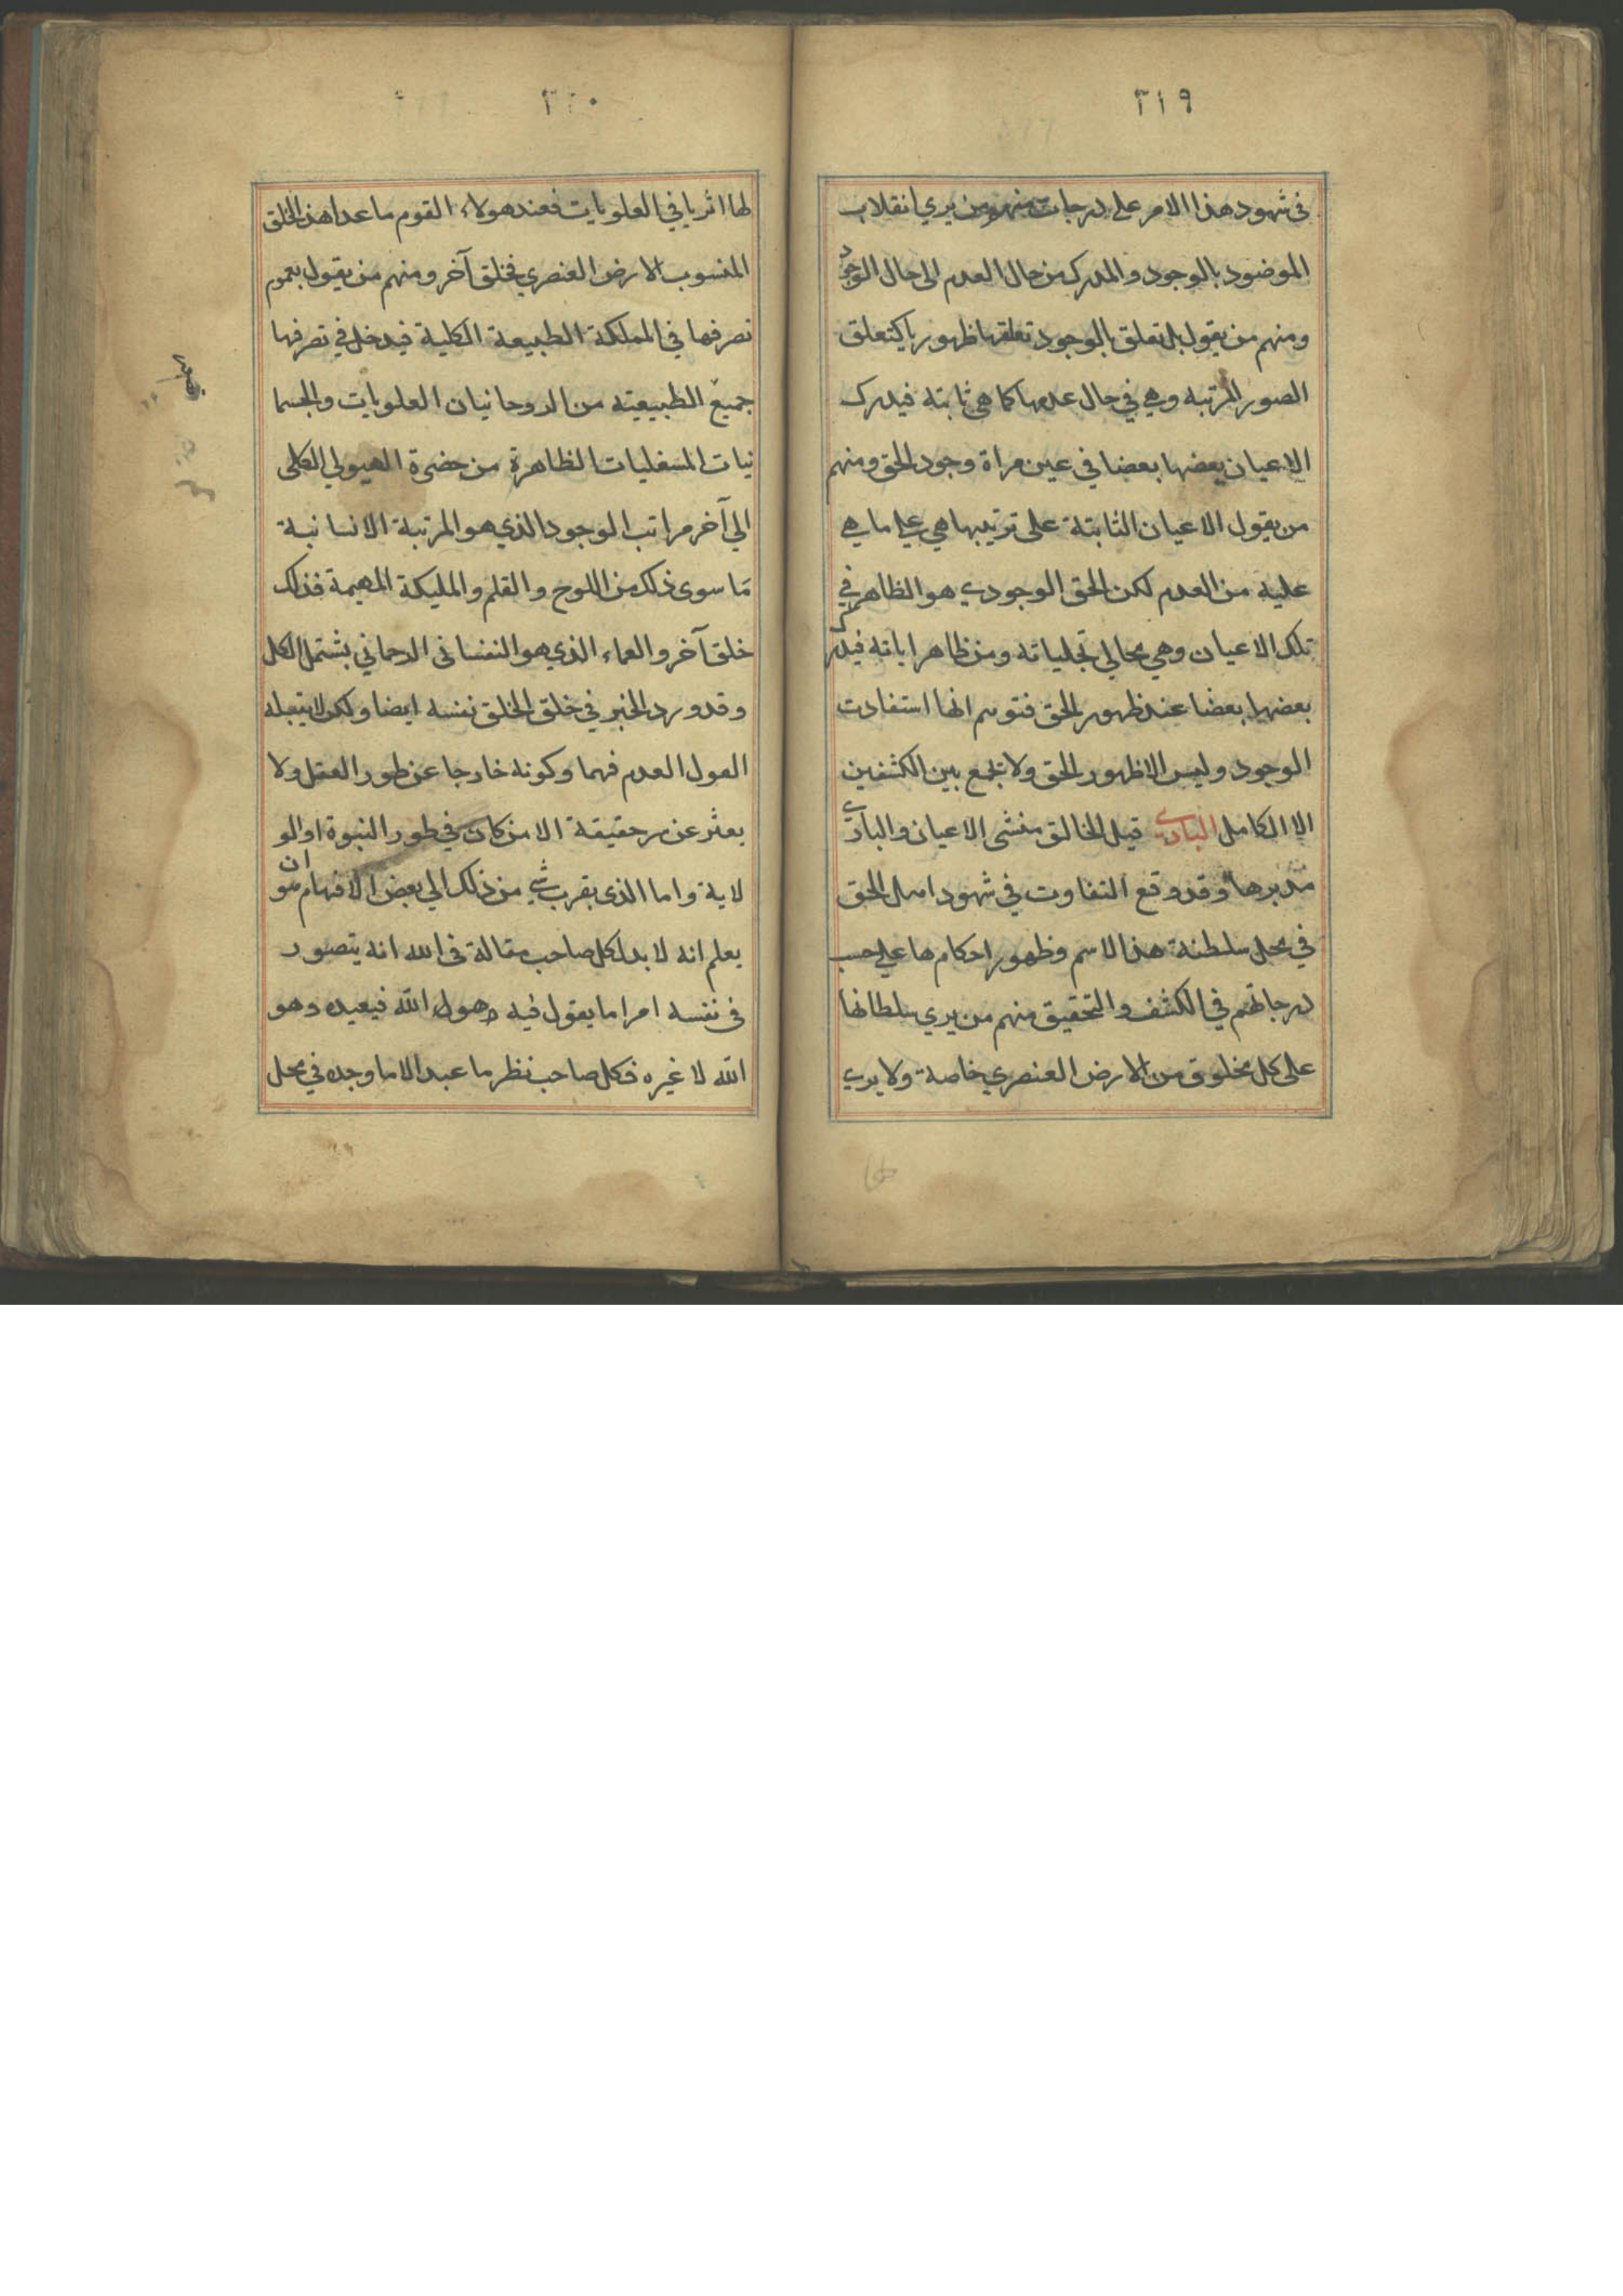 ٣١٩
فى شهود هذا الامر على درجات منهم من يري انقلاب
الموضود بالوجود والمدرك من حال العدم الى حال الوجود
ومنهم من يقول بل تعلق بالوجود تعلقها ظهوريا كتعلق
الصور المرتبه وهي في حال عدمها كما هي ثابته فيدرك
الاعيان بعضها بعضا في عين مراة وجود الحق ومنهم
من يقول الاعيان الثابتة على ترتيبها هي على ما هي
عليه من العدم لكن الحق الوجودي هو الظاهر في
تلك الاعيان وهي مجالي تجلياته ومن ظاهر اياته فيدرك
بعضها بعضا عند ظهور الحق فتوهم انها استفادت
الوجود وليس الا ظهور الحق ولا يجمع بين الكشفين
الا الكامل البادى قيل الخالق منشى الاعيان والبادى
مدبرها وقد وقع التفاوت في شهود اهل الحق
في محل سلطنة هذا الاسم وظهور احكام ها على حسب
درجاتهم في الكشف والتحقيق منهم من يري سلطانها
على كل مخلوق من الارض العنصري خاصة ولا يرى
٣٢٠
لها اثر يا في العلويات فعند هولاء القوم ما عدا هذ الخلق
المنسوب الارض العنصري فخلق آخر ومنهم من يقول بعموم
تصرفها في المملكة الطبيعة الكلية فيدخل في تصرفها
جميع الطبيعيته من الروحانيان العلويات والجسما
نيات المسفليات الظاهرة من حضرة الهيولي الكلى
الي آخر مراتب الوجود الذي هو المرتبة الانسانية
ما سوى ذلك من اللوح والقلم والمليكة المهيمة فذلك
خلق آخر والعماء الذي هو النفسانى الرحماني يشتمل الكل
وقد ورد الخبر في خلق الخلق نفسه ايضا ولكن لا يقبله
العول العدم فهما وكونه خارجا عن طور العقل ولا
يعثر عن سر حقيقة الا من كان في طور النبوة او الو
لاية واما الذى يقرب شي من ذلك الي بعض الافهام هو ان
يعلم انه لا بد لكل صاحب مقالة فى الله انه يتصور
فى نفسه امرا ما يقول فيه هو الله فيعبده وهو
الله لا غيره فكل صاحب نظر ما عبد الا ما وجده في محل